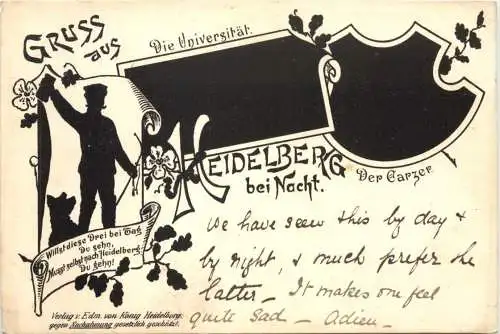 Gruss
aus
Die Universität.
Heidelberg
bei Nacht.
Der Carzer.
Willst diese Drei bei Tag
Du sehn,
Musst selbst nach Heidelberg
Du gehn!
We have seen this by day &
by night, & much prefer the
latter — It makes one feel
quite sad — Adieu —
Verlag v. Edm. von König Heidelberg.
gegen Nachahmung gesetzlich geschützt.